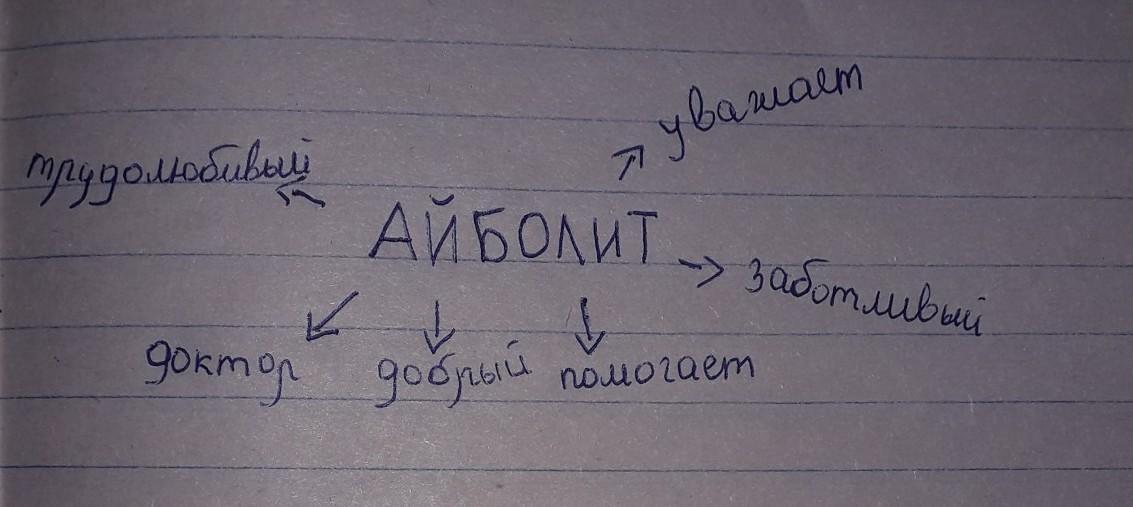 уважает
трудолюбивый
АЙБОЛИТ
заботливый
доктор добрый помогает